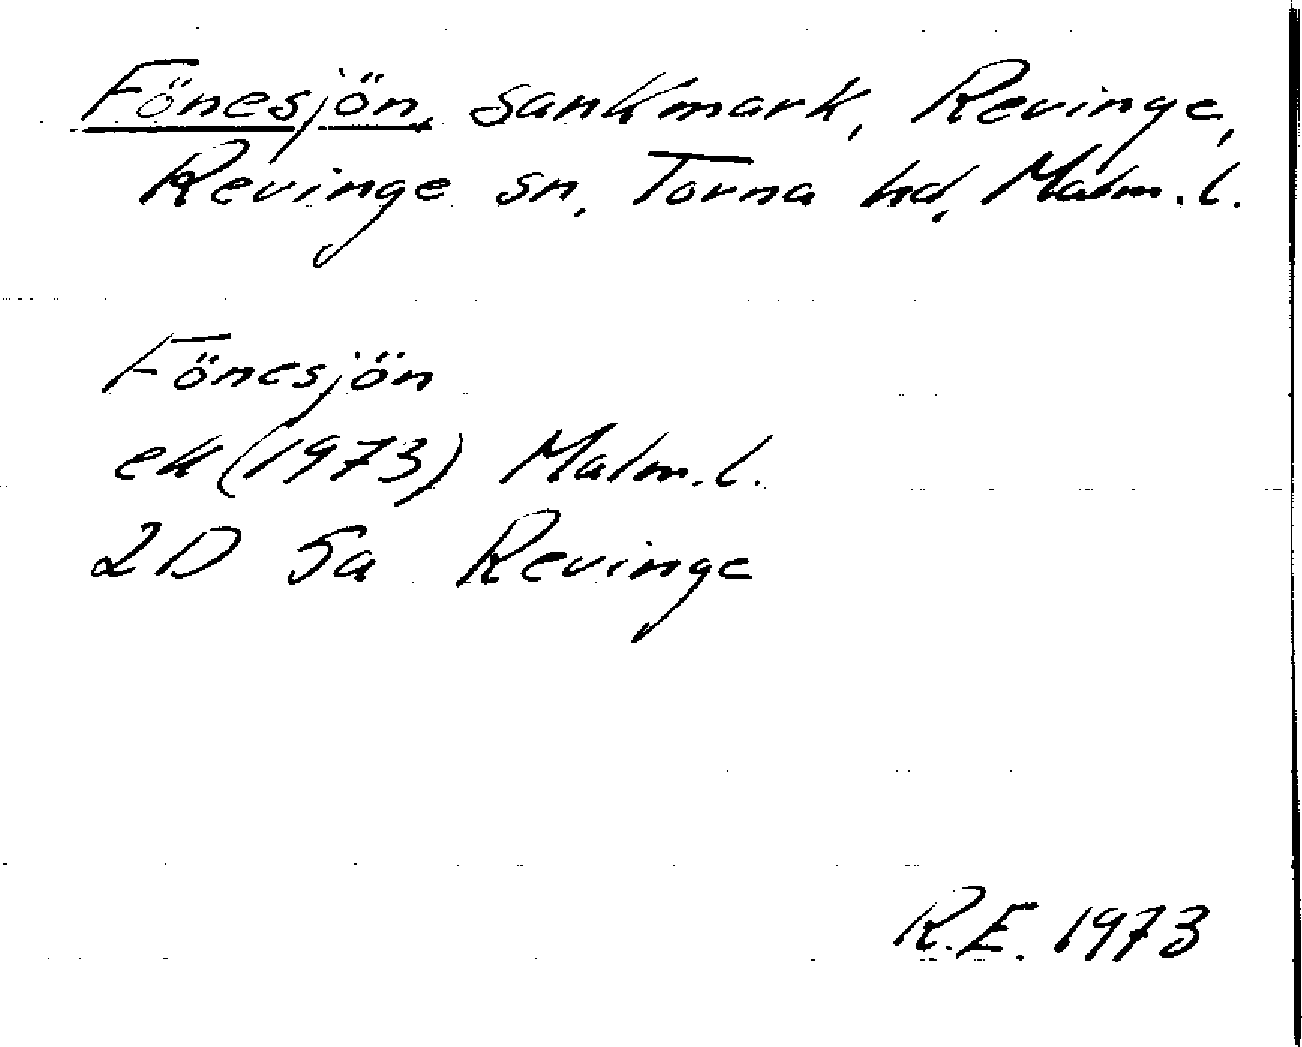 Fönesjön, sankmark, Revinge,
Revinge sn, Torna hd, Malm. l.
Fönesjön
ek (1973) Malm. l.
2D 5a Revinge
R.E. 1973